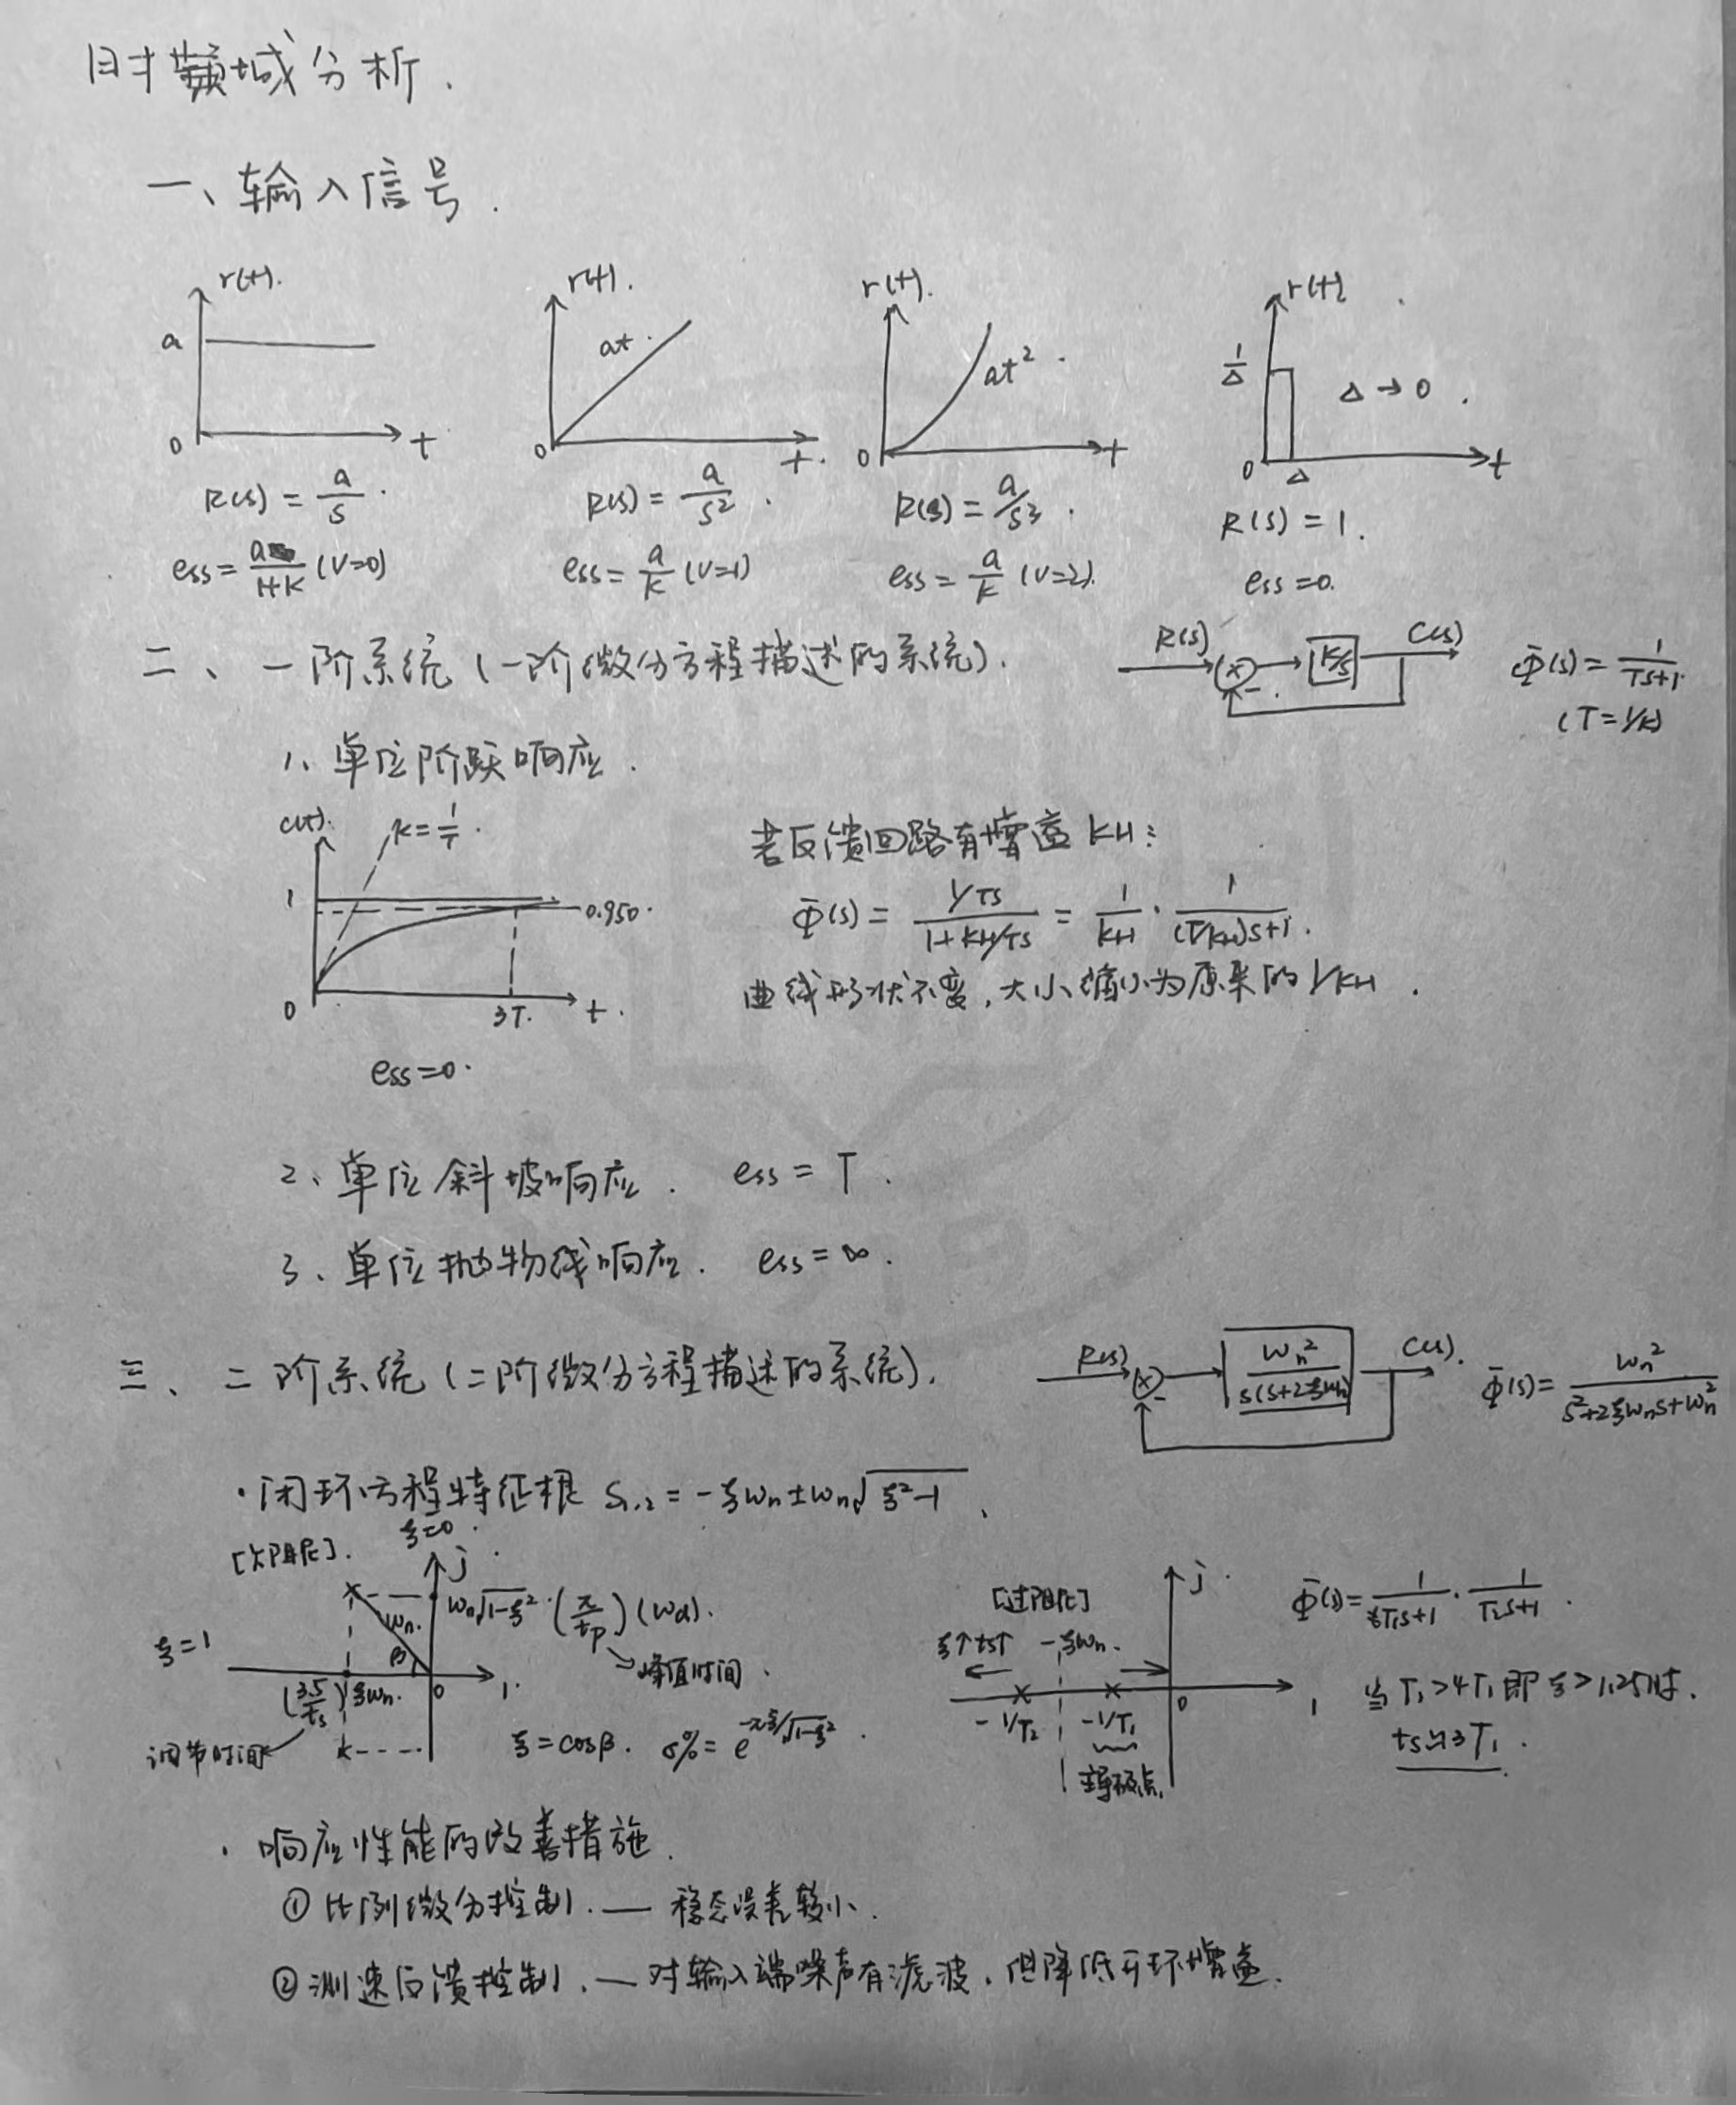 时域分析.
一、输入信号.
r(t). a 0 t
r(t). at. 0 t.
r(t). at² 0 t
r(t) 1/Δ Δ→0. 0 Δ t
R(s) = a/s.
R(s) = a/s².
R(s) = a/s³.
R(s) = 1.
ess = a/(1+K) (V=0)
ess = a/K (V=1)
ess = a/K (V=2).
ess = 0.
二、一阶系统(一阶微分方程描述的系统).
R(s) - K/s C(s)
Φ(s) = 1/(Ts+1)
(T=1/K)
1、单位阶跃响应.
c(t). K=1/T. 1 0.950. 0 3T. t.
ess=0.
若反馈回路有增益KH:
Φ(s) = (1/Ts)/(1+KH/Ts) = 1/KH · 1/((T/KH)s+1).
曲线形状不变,大小缩小为原来的1/KH.
2、单位斜坡响应. ess = T.
3、单位抛物线响应. ess = ∞.
三、二阶系统(二阶微分方程描述的系统).
R(s) - ωn²/(s(s+2ξωn)) C(s).
Φ(s) = ωn²/(s²+2ξωns+ωn²)
·闭环方程特征根 S1,2 = -ξωn±ωn√(ξ²-1)
[欠阻尼]. ξ=0. j
ωn√(1-ξ²)·(π/tp)(ωd).
ωn. β
ξ=1
峰值时间.
(3.5/ts) ξωn. 0 1.
调节时间
ξ=cosβ. σ%= e^(-πξ/√(1-ξ²)).
[过阻尼] j.
ξ↑ts↑ -ξωn.
-1/T2 -1/T1 0 1
主导极点.
Φ(s)= 1/(T1s+1) · 1/(T2s+1).
当T1>4T1即ξ>1.25时.
ts≈3T1.
·响应性能的改善措施.
① 比例微分控制. — 稳态误差较小.
② 测速反馈控制. — 对输入端噪声有滤波,但降低开环增益.